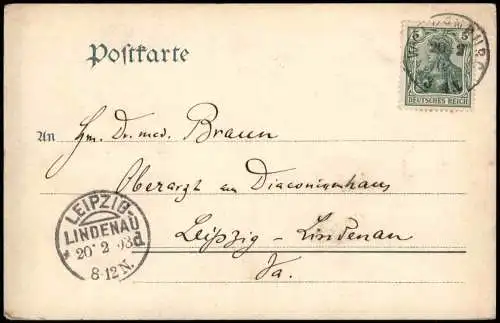 Postkarte
5 5
DEUTSCHES REICH
An
Hrn. Dr. med. Braun
Oberarzt am Diaconissenhaus
Leipzig-Lindenau
LEIPZIG
LINDENAU
* 20 2 03 d
8-12 N.